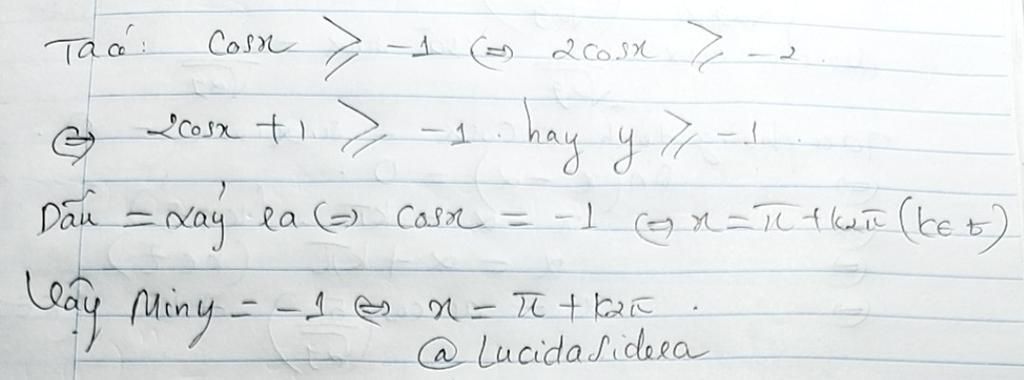 Ta có: cosx ⩾ -1 ⇔ 2cosx ⩾ -2.
⇔ 2cosx + 1 ⩾ -1. hay y ⩾ -1.
Dấu = xảy ra ⇔ cosx = -1 ⇔ x = π + k2π (k∈Z)
Vậy Miny = -1 ⇔ x = π + k2π.
@Lucidasidera